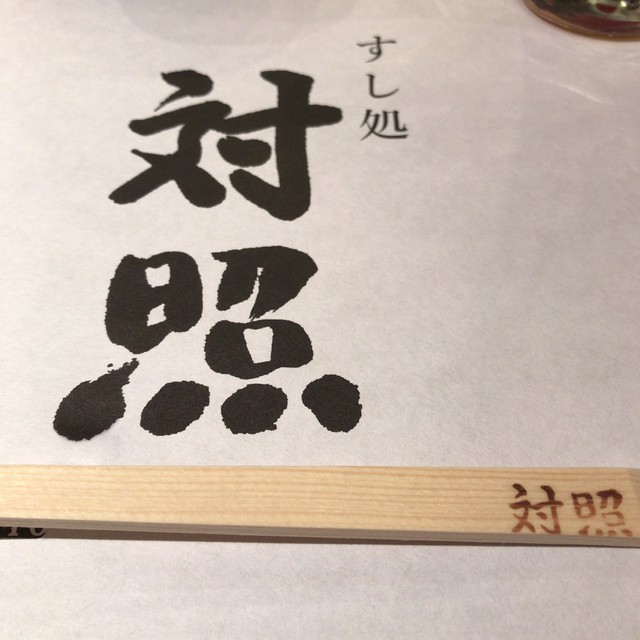 すし処
対照
対照